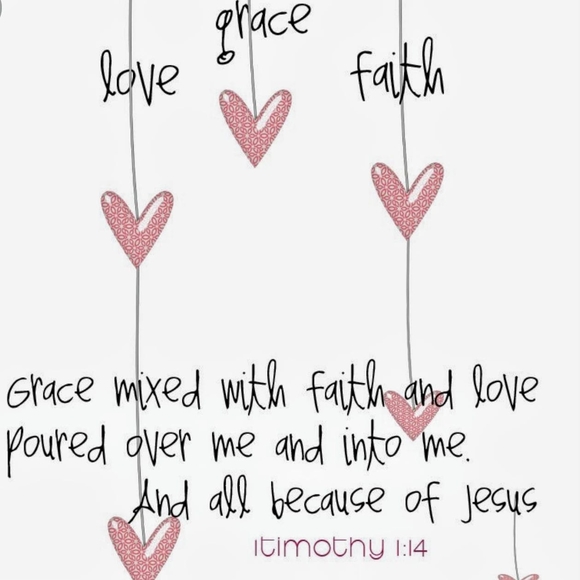 grace
love faith
Grace mixed with faith and love
poured over me and into me.
And all because of Jesus
1timothy 1:14